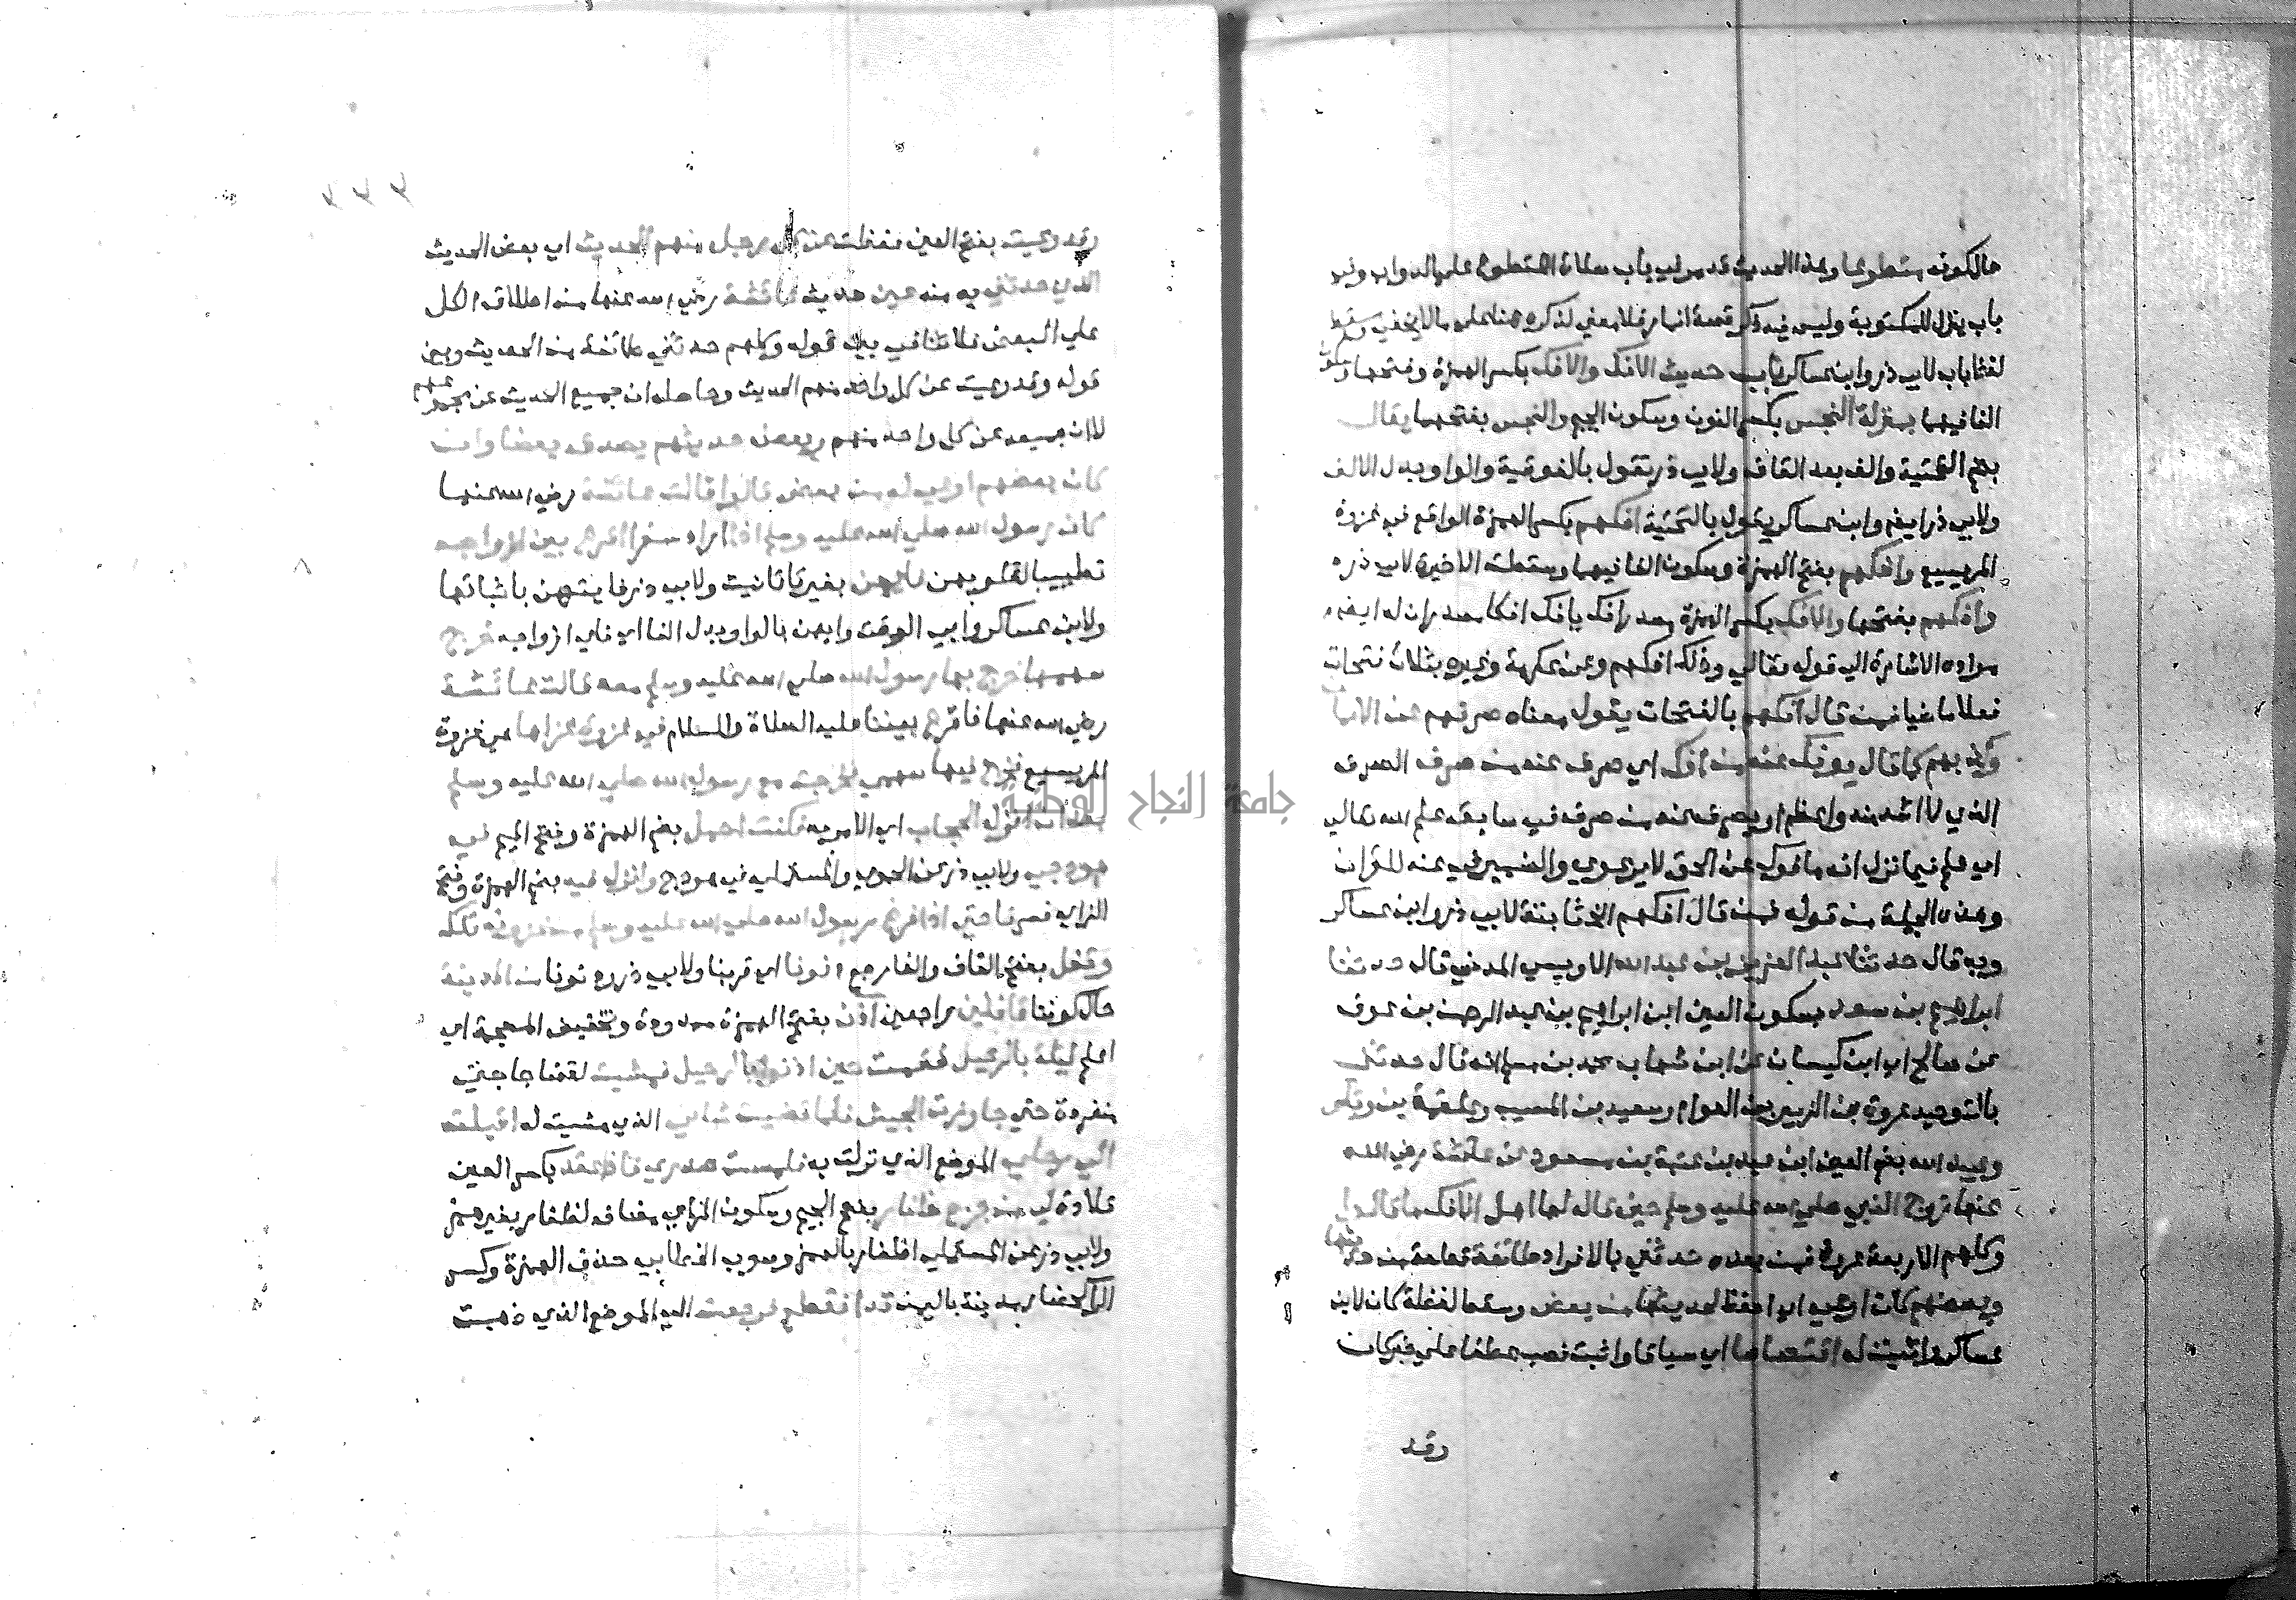 حالكونه متطوعا وهذا الحديث قد مر في باب صلاة التطوع على الدواب وفي
باب ينزل للمكتوبة وليس فيه ذكر قصة انمار فلا معنى لذكره هنا على ما لا يخفى وسقط
لفظ باب لابي ذر وابن عساكر باب حديث الافك والافك بكسر الهمزة وفتحها وسكون
الفا فيهما بمنزلة النجس بكسر النون وسكون الجيم والنجس بفتحهما يقال
بضم التحتية والف بعد القاف ولابي ذر تقول بالفوقية والواو بدل الالف
ولابي ذر ايضا وابن عساكر يقول بالتحتية افكهم بكسر الهمزة الواقع في غزوة
المريسيع وافكهم بفتح الهمزة وسكون الفا فيهما وسقطت الاخيرة لابي ذر
وافكهم بفتحهما والافك بكسر الهمزة مصدر افك يافك افكا مصدران له ايضا
مراده الاشارة الى قوله تعالى وذلك افكهم وعن عكرمة وغيره بثلاث فتحات
فعلا ماضيا فمن قال افكهم بالفتحات يقول معناه صرفهم عن الايمان
وكذبهم كما قال يوفك عنه من افك اي صرف عنه من صرف الصرف
الذي لا اشد منه واعظم او يصرف عنه من صرف في سابق علم الله تعالى
اي علم فيما لم يزل انه مافوك عن الحق لا يرعوي والضمير في عنه للقران
وهذه الجملة من قوله فمن قال افكهم الخ ثابتة لابي ذر وابن عساكر
وبه قال حدثنا عبد العزيز بن عبد الله الاويسي المدني قال حدثنا
ابراهيم بن سعد بسكون العين ابن ابراهيم بن عبد الرحمن بن عوف
عن صالح اي ابن كيسان عن ابن شهاب محمد بن مسلم انه قال حدثني
بالتوحيد عروة بن الزبير بن العوام وسعيد بن المسيب وعلقمة بن وقاص
وعبيد الله بضم العين ابن عبد الله بن عتبة بن مسعود عن عائشة رضي الله
عنها زوج النبي صلى الله عليه وسلم حين قال لها اهل الافك ما قالوا
وكلهم الاربعة عروة فمن بعده حدثني بالافراد طائفة قطعة من حديثها
وبعضهم كان اوعى اي احفظ لحديثها من بعض وسقط لفظة كان لابن
عساكر واثبت له اقتصاصا اي سياقا واثبت نصب عطفا على خبر كان
وقد
٢٣٣
وقد وعيت بفتح العين حفظت عن كل رجل منهم الحديث اي بعض الحديث
الذي حدثني به منه عين حديث عائشة رضي الله عنها من اطلاق الكل
على البعض فلا تنافي بين قوله وكلهم حدثني طائفة من الحديث وبين
قوله وقد وعيت عن كل واحد منهم الحديث وحاصله ان جميع الحديث عن مجموعهم
لا ان جميعه عن كل واحد منهم وبعض حديثهم يصدق بعضا وان
كان بعضهم اوعى له من بعض قالوا قالت عائشة رضي الله عنها
كان رسول الله صلى الله عليه وسلم اذا اراد سفرا اقرع بين ازواجه
تطييبا لقلوبهن فايهن بغير تا تانيث ولابي ذر فايتهن باثباتها
ولابن عساكر وابي الوقت وايهن بالواو بدل الفا اي فاي ازواجه خرج
سهمها خرج بها رسول الله صلى الله عليه وسلم معه قالت عائشة
رضي الله عنها فاقرع بيننا عليه الصلاة والسلام في غزوة غزاها هي غزوة
المريسيع فخرج فيها سهمي فخرجت مع رسول الله صلى الله عليه وسلم
بعد ان انزل الحجاب اي الامر به فكنت احمل بضم الهمزة وفتح الميم في
هودجي ولابي ذر عن الحموي والمستملي في هودج وانزل فيه بضم الهمزة وفتح
الزاي فسرنا حتى اذا فرغ رسول الله صلى الله عليه وسلم من غزوته تلك
وقفل بفتح القاف والفا رجع دنونا اي قربنا ولابي ذر ودنونا من المدينة
حال كوننا قافلين راجعين آذن بفتح الهمزة ممدودة وتخفيف المعجمة اي
اعلم ليلة بالرحيل فقمت حين اذنوا بالرحيل فمشيت لقضا حاجتي
منفردة حتى جاوزت الجيش فلما قضيت شاني الذي مشيت له اقبلت
الى رحلي الموضع الذي نزلت به فلمست صدري فاذا عقد بكسر العين
قلادة لي من جزع ظفار بفتح الجيم وسكون الزاي مضاف لظفار بغير همز
ولابي ذر عن المستملي اظفار بالهمز وصوب الخطابي حذف الهمزة وكسر
الرا كحضار مدينة باليمن قد انقطع فرجعت الى الموضع الذي ذهبت
جامعة النجاح الوطنية